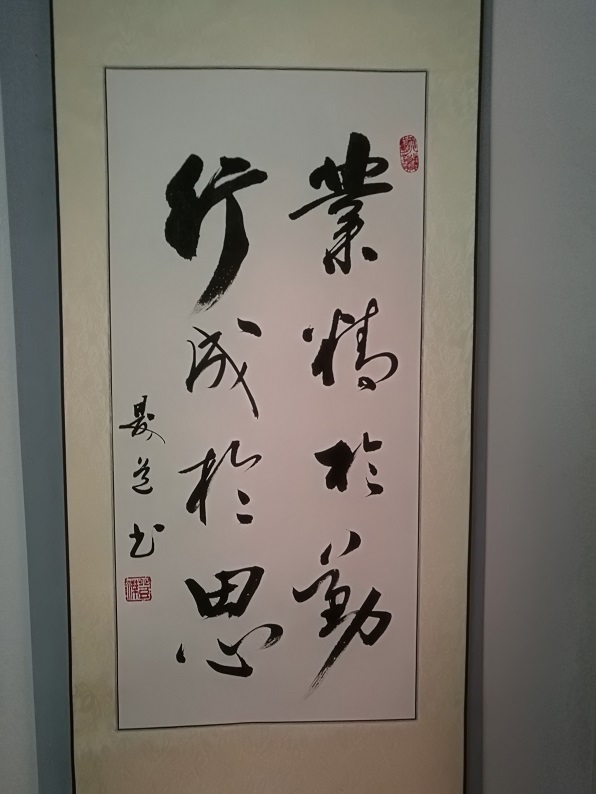 業精於勤
行成於思